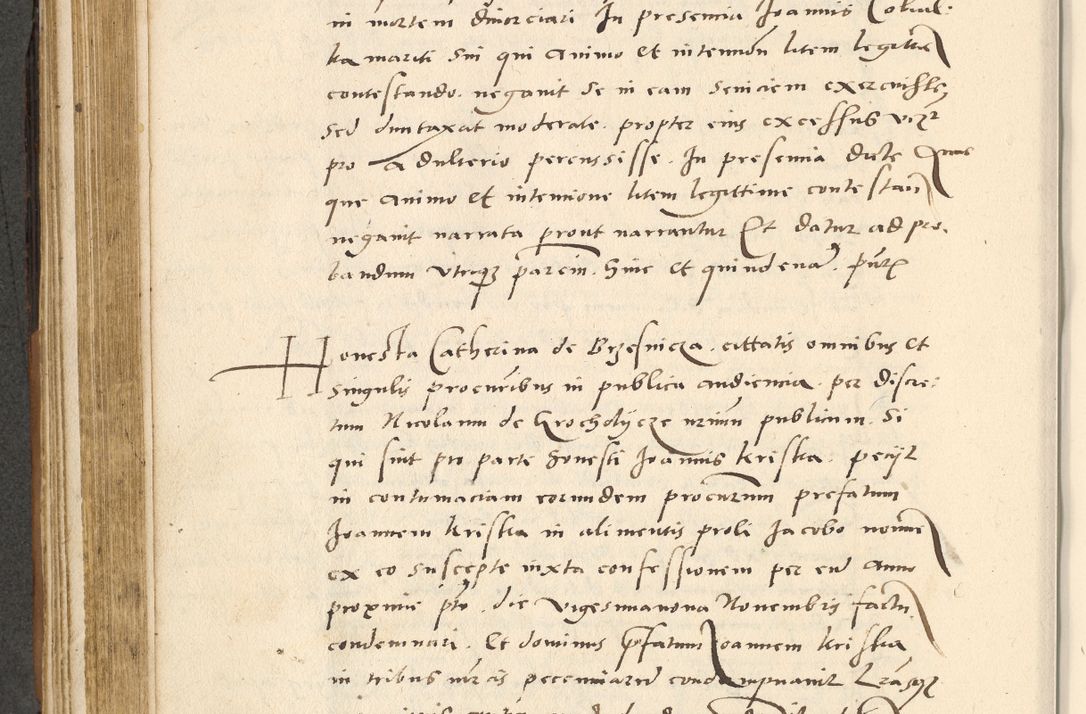 in mortem divorciari In presencia Joannis Cobial:
ka mariti sui qui animo et intencion litem legittie
contestando. negavit se in eam seviciem exercuisse,
sed duntaxat moderate. propter eius excessus vizt
pro adulterio percussisse. In presencia dicte
que animo et intencione litem legittime contestan
negavit narrata prout narrantur Et datur ad pro.
bandum utrique partem. Sine et quindena.
Honesta Catherina de Brzesnicza. cittatis omnibus et
singulis procuribus in publica audiencia. per discre:
tum Nicolaum de Krocholycze nrium publicum. Si
qui sint pro parte honesti Joannis Kriska. peciit
in contumaciam eorundem procurum prefatum
Joannem Kriska in alimentis proli Jacobo nomine
ex eo suscepte iuxta confessionem per eum anno
proxime pto. die vigesimanona Novembris factu
condemnari. Et dominus prefatum Joannem Kriska
in tribus mrcis pecuniarum condempnavit